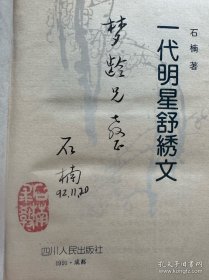 石楠 著
一代明星舒绣文
梦龄兄
教正
石楠
92.11.20
四川人民出版社
1991·成都